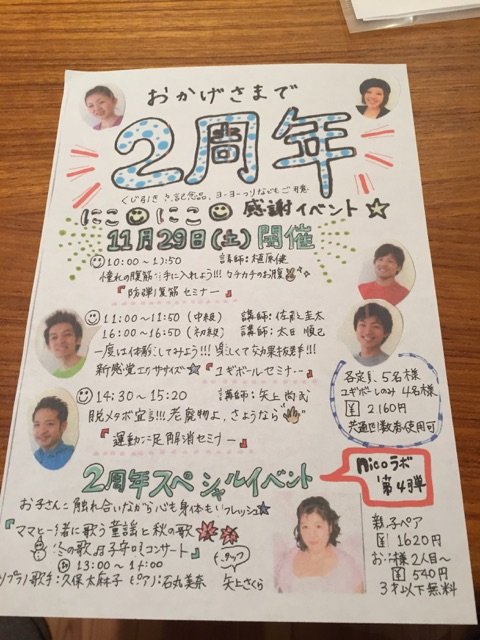 おかげさまで
2周年
くじ引き、記念品、ヨーヨーつりなどもご用意
にこ にこ 感謝イベント☆
11月29日(土)開催
10:00～10:50 講師:植原健
憧れの腹筋を手に入れよう!!! カチカチのお腹
『防弾腹筋セミナー』
11:00～11:50 (中級) 講師:佐藤圭太
16:00～16:50 (初級) 講師:太田順己
一度は体験してみよう!!! 楽しくて効果抜群!!!
新感覚エクササイズ☆『ユギボールセミナー』
各定員、5名様
ユギボールのみ 4名様
¥ 2,160円
共通回数券使用可
14:30～15:20 講師:矢上尚武
脱メタボ宣言!!! 老廃物よ、さようなら
『運動不足解消セミナー』
2周年スペシャルイベント
nicoラボ
第4弾
お子さんと触れ合いながら心も身体もリフレッシュ☆
『ママと一緒に歌う童謡と秋の歌
冬の歌 親子コンサート』
13:00～14:00
ソプラノ歌手:久保太麻子 ピアノ:石丸美奈
スタッフ
矢上さくら
親子ペア
¥ 1620円
お子様2人目～
¥ 540円
3才以下無料